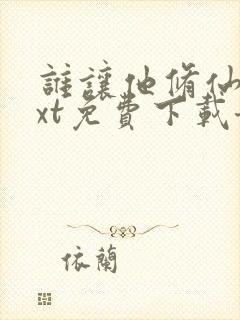 誰讓他脩仙
xt免費下載
依蘭